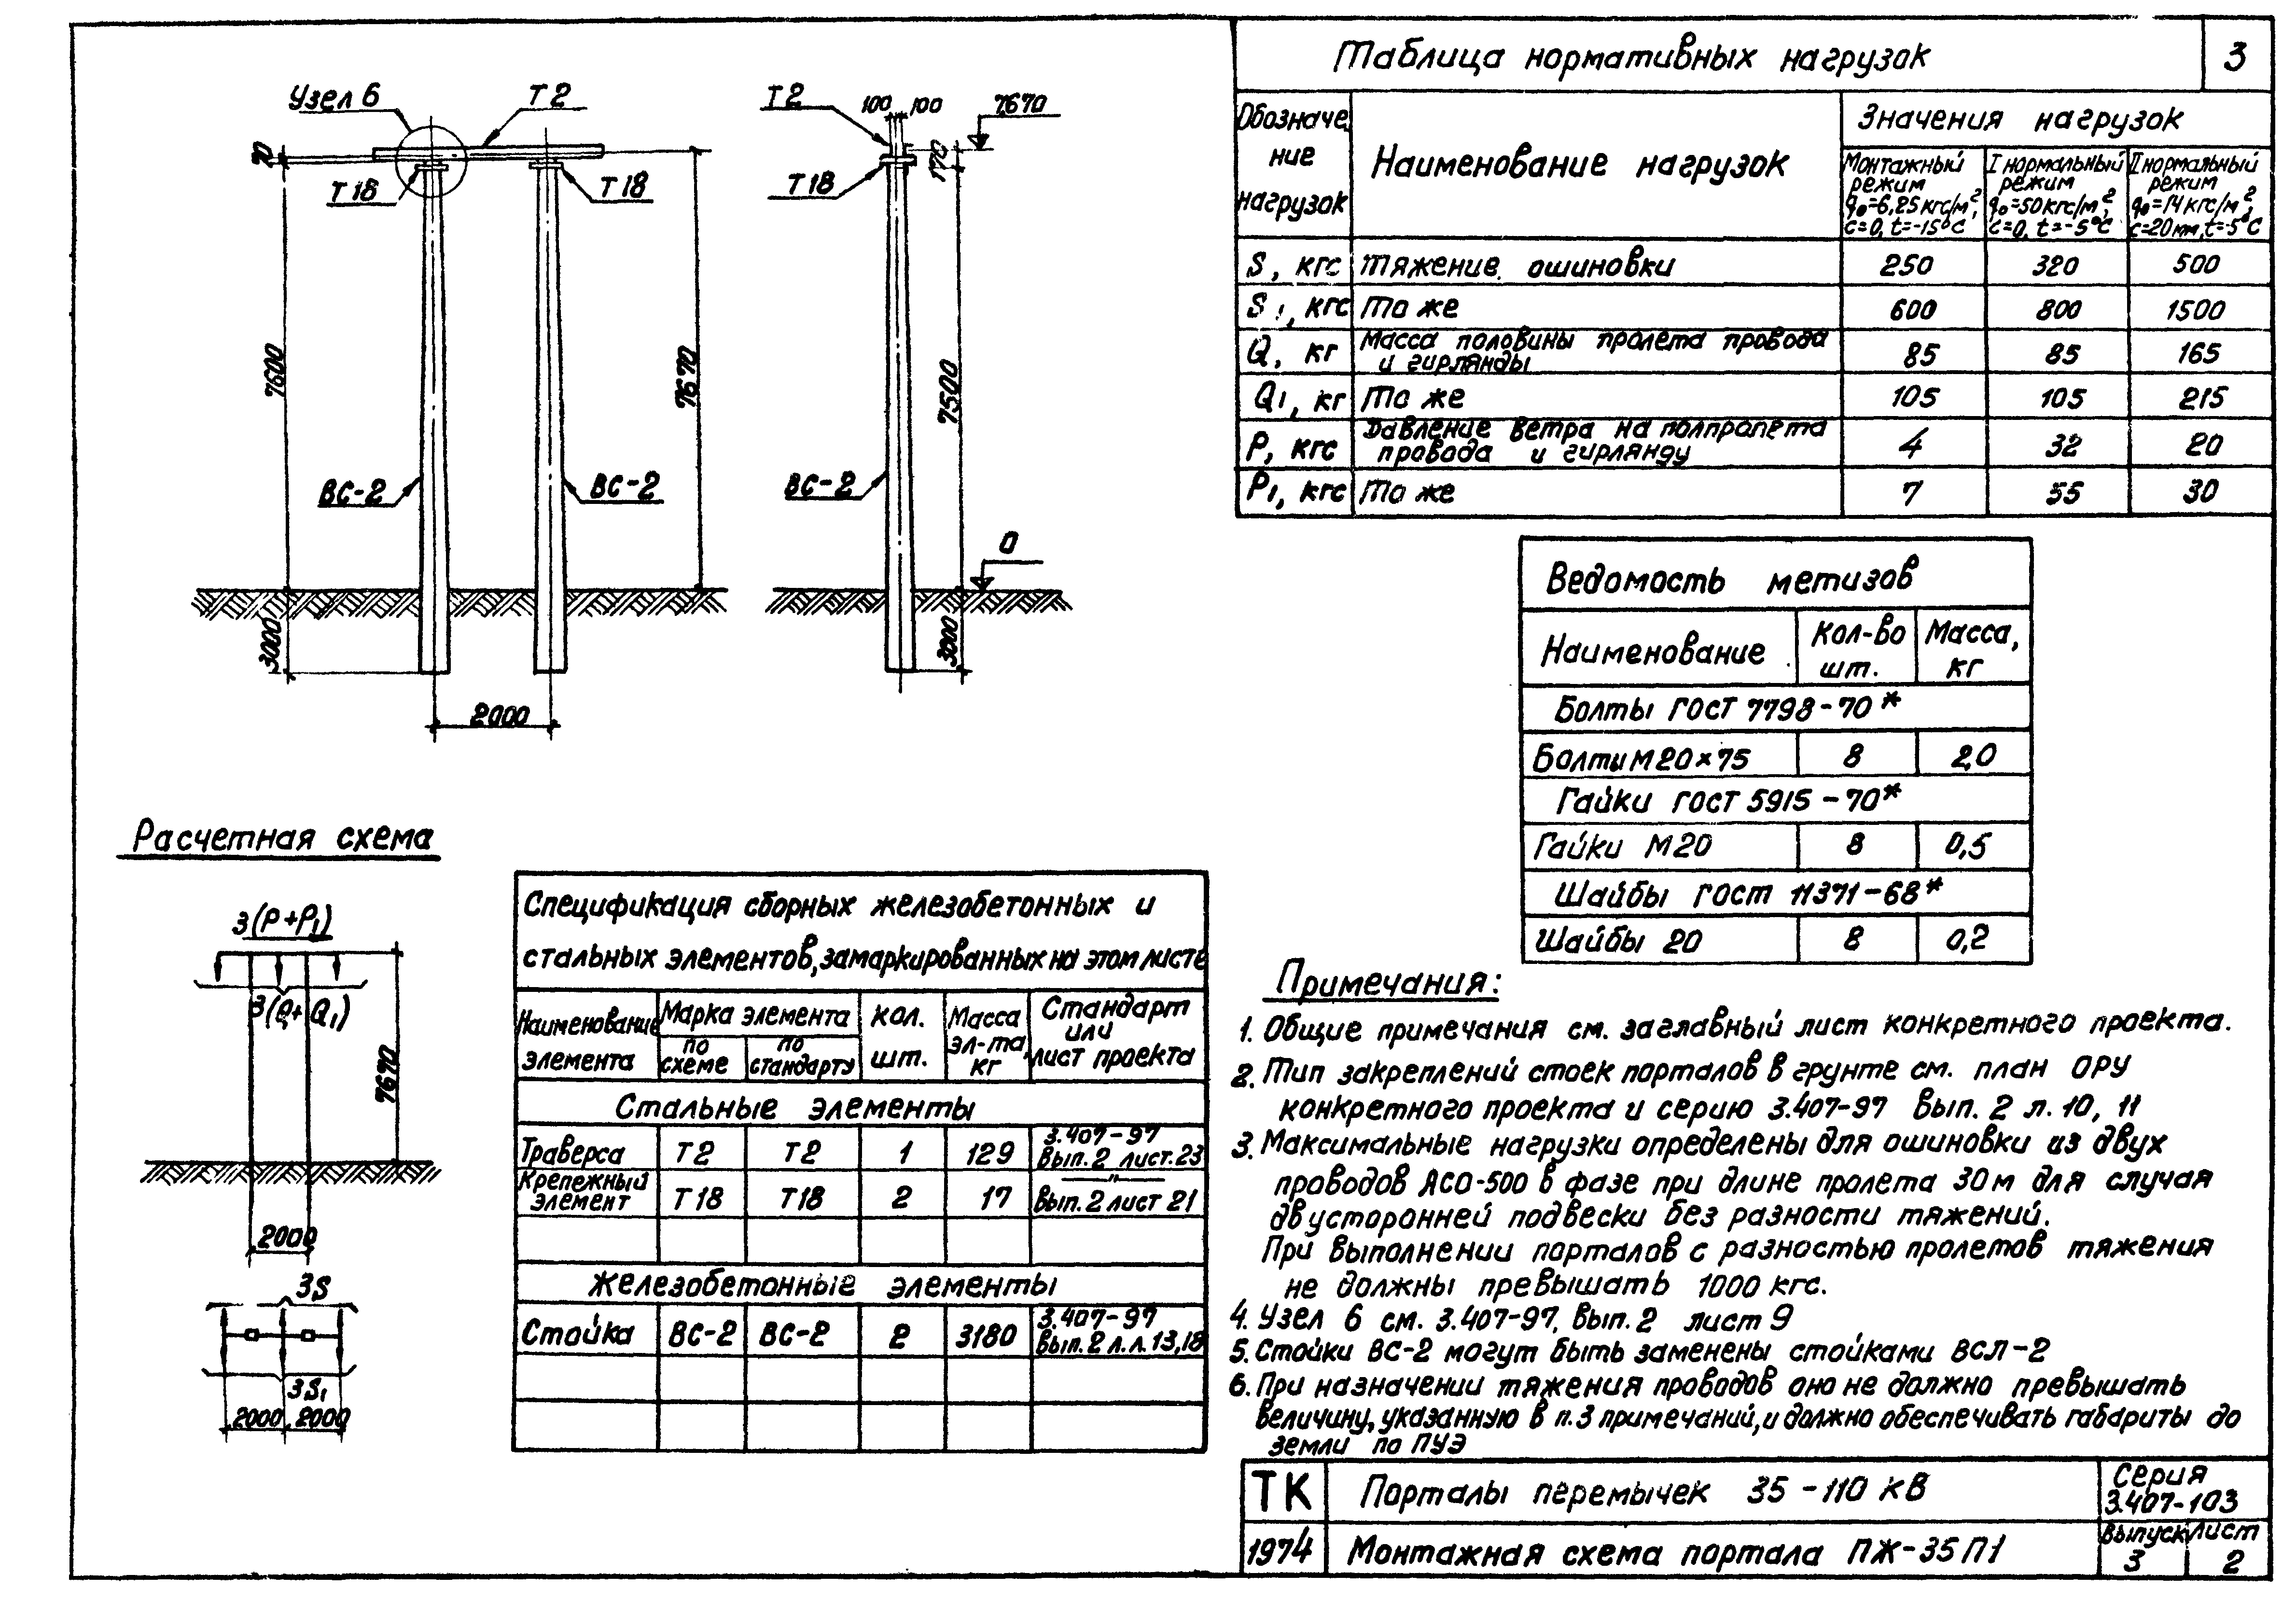 Узел 6
Т 2
70
Т 18
Т 18
7600
7670
ВС-2
ВС-2
3000
2000
Т 2
100 100
7670
170
Т 18
7500
ВС-2
0
3000
Расчетная схема
3(Р+Р1)
3(Q+Q1)
7670
2000
3S
3S1
2000 2000
Спецификация сборных железобетонных и
стальных элементов, замаркированных на этом листе
Наименование элемента
Марка элемента
по схеме
по стандарту
кол. шт.
Масса эл-та, кг
Стандарт или лист проекта
Стальные элементы
Траверса Т 2 Т 2 1 129 3.407-97 Вып. 2 лист. 23
Крепежный элемент Т 18 Т 18 2 17 —"— Вып. 2 лист 21
Железобетонные элементы
Стойка ВС-2 ВС-2 2 3180 3.407-97 Вып. 2 л.л. 13,18
Таблица нормативных нагрузок
3
Обозначение нагрузок
Наименование нагрузок
Значения нагрузок
Монтажный режим q₀=6,25кгс/м², с=0, t=-15°С
I нормальный режим q₀=50кгс/м², с=0, t=-5°С
II нормальный режим q₀=14кгс/м², с=20мм, t=-5°С
S, кгс Тяжение ошиновки 250 320 500
S1, кгс То же 600 800 1500
Q, кг Масса половины пролета провода и гирлянды 85 85 165
Q1, кг То же 105 105 215
Р, кгс Давление ветра на полпролета провода и гирлянду 4 32 20
Р1, кгс То же 7 55 30
Ведомость метизов
Наименование Кол-во шт. Масса, кг
Болты ГОСТ 7798-70*
Болты М20×75 8 2,0
Гайки ГОСТ 5915-70*
Гайки М20 8 0,5
Шайбы ГОСТ 11371-68*
Шайбы 20 8 0,2
Примечания:
1. Общие примечания см. заглавный лист конкретного проекта.
2. Тип закреплений стоек порталов в грунте см. план ОРУ
конкретного проекта и серию 3.407-97 Вып. 2 л. 10, 11
3. Максимальные нагрузки определены для ошиновки из двух
проводов АСО-500 в фазе при длине пролета 30м для случая
двусторонней подвески без разности тяжений.
При выполнении порталов с разностью пролетов тяжения
не должны превышать 1000 кгс.
4. Узел 6 см. 3.407-97, Вып. 2 лист 9
5. Стойки ВС-2 могут быть заменены стойками ВСЛ-2
6. При назначении тяжения проводов оно не должно превышать
величину, указанную в п.3 примечаний, и должно обеспечивать габариты до
земли по ПУЭ
ТК
Порталы перемычек 35-110 кВ
Серия 3.407-103
1974
Монтажная схема портала ПЖ-35П1
Выпуск 3
Лист 2